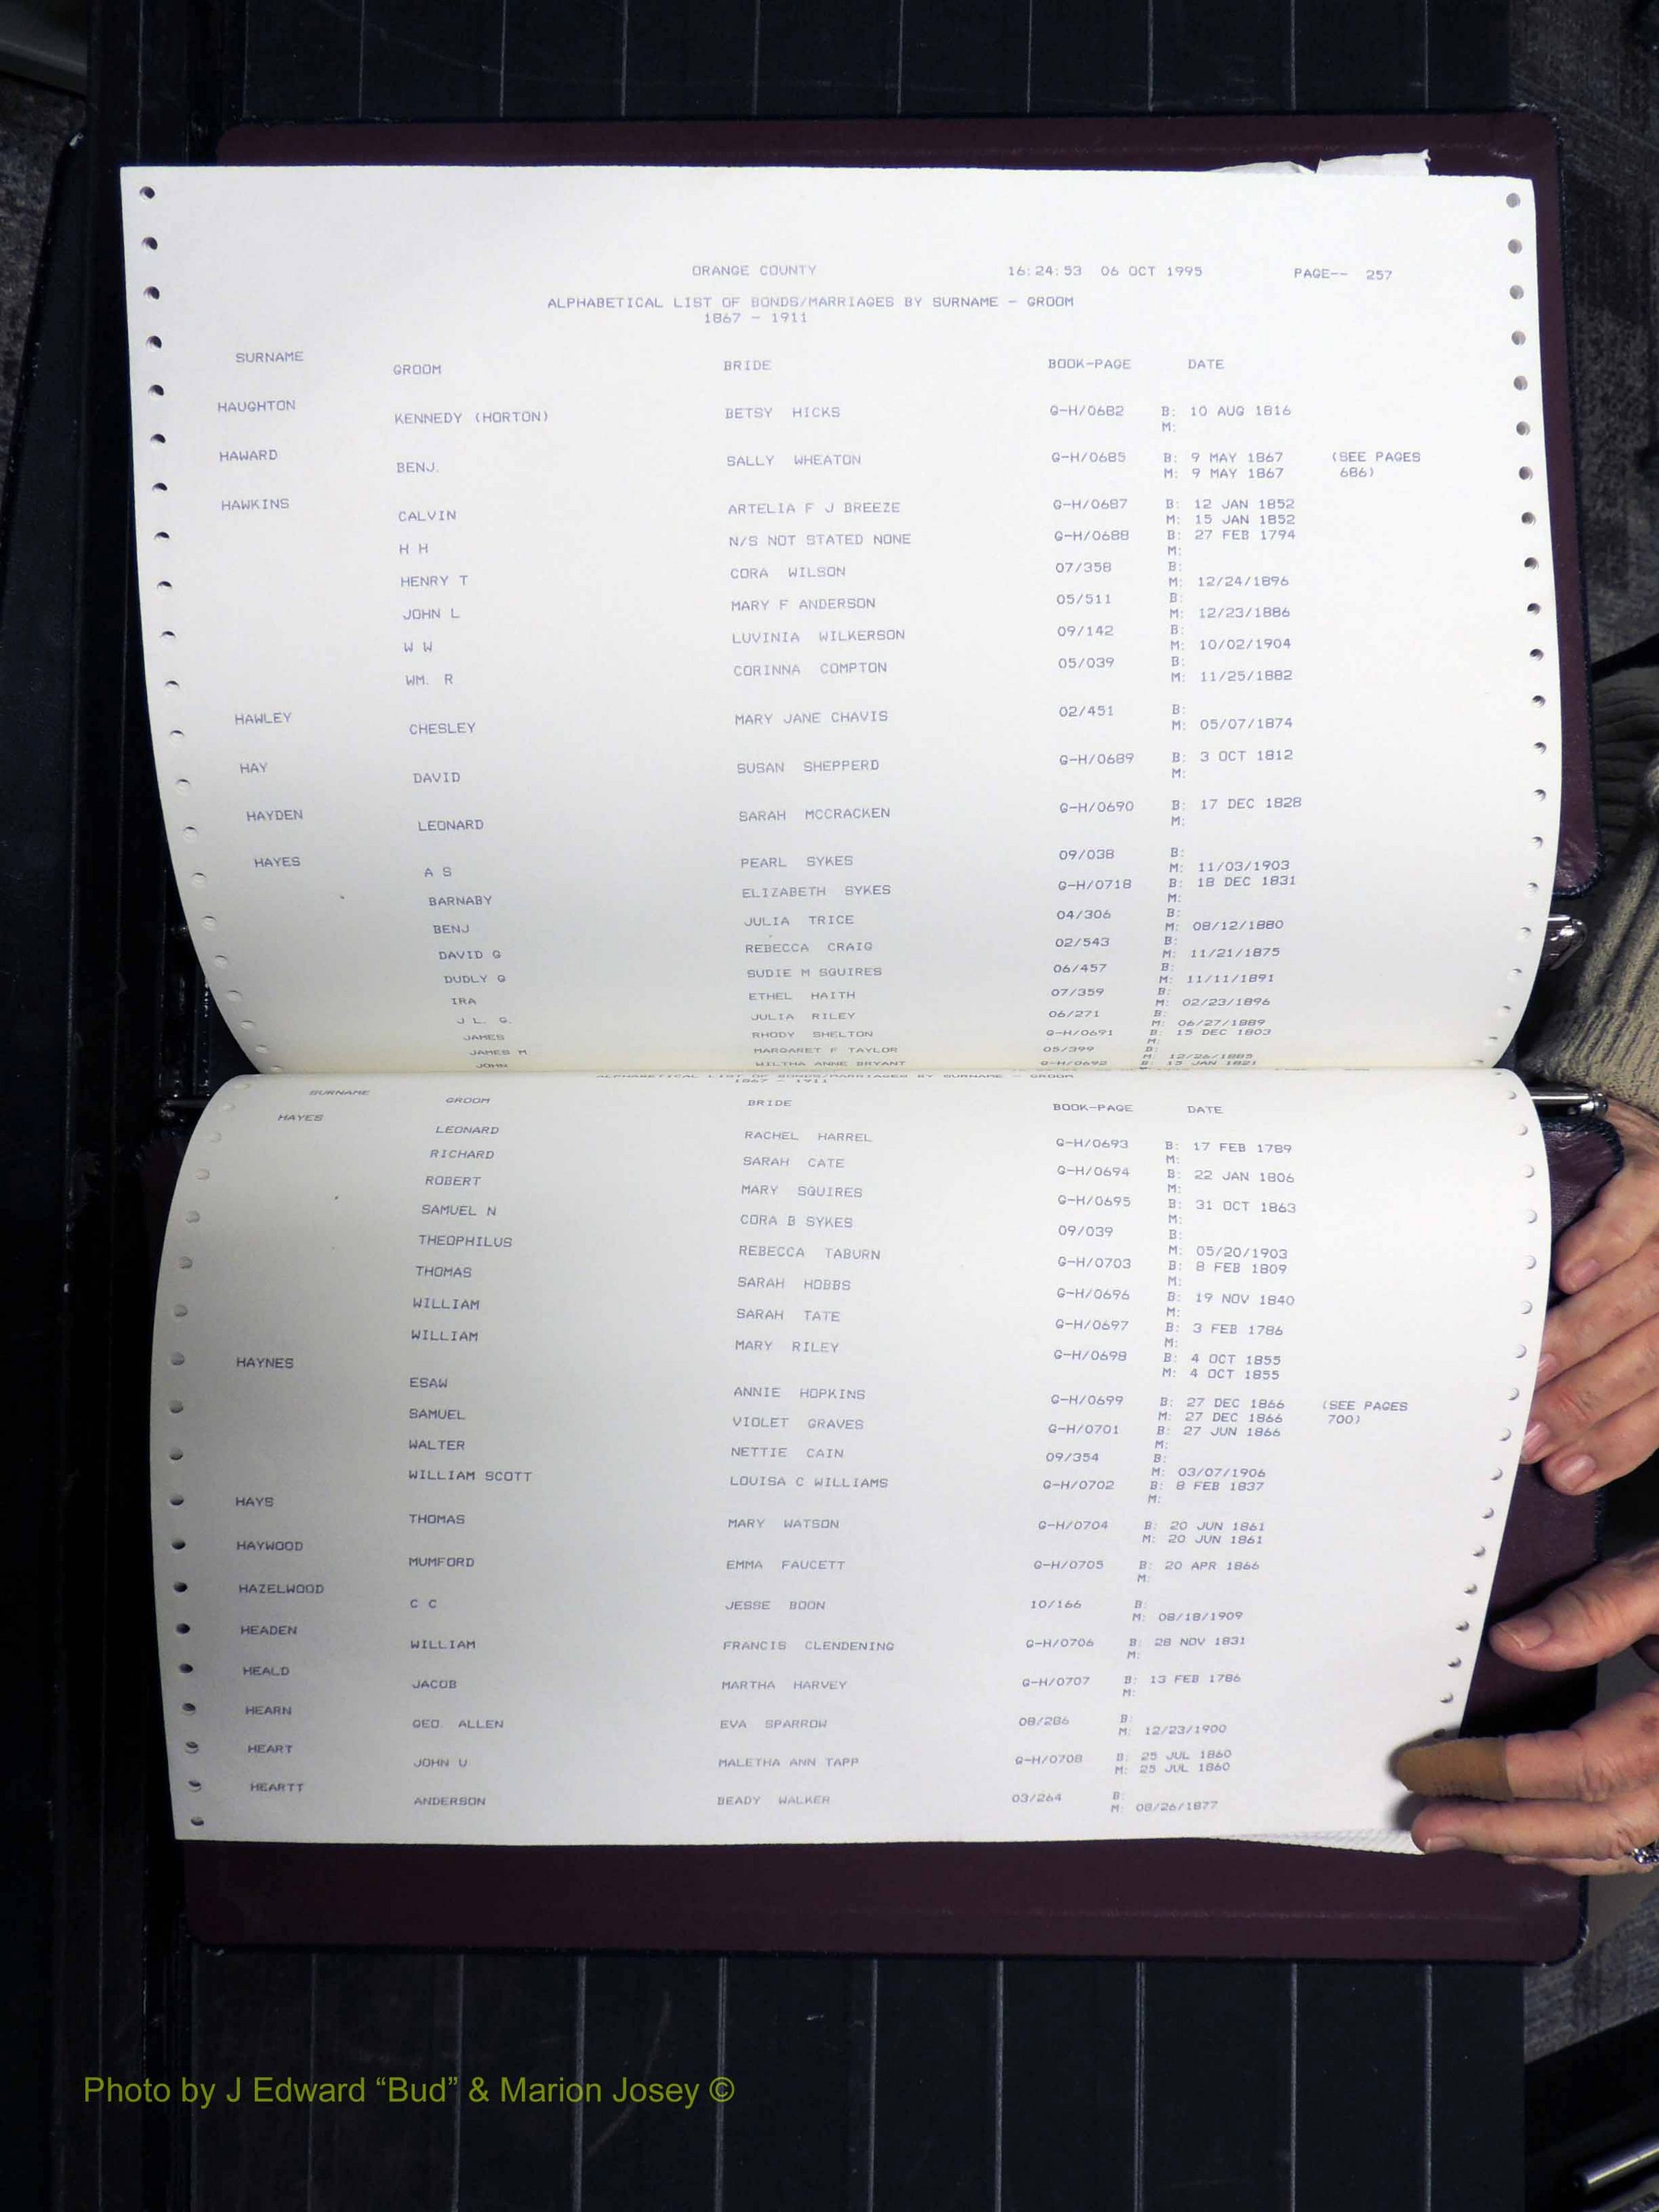 ORANGE COUNTY 16:24:53 06 OCT 1995 PAGE-- 257
ALPHABETICAL LIST OF BONDS/MARRIAGES BY SURNAME - GROOM
1867 - 1911
SURNAME GROOM BRIDE BOOK-PAGE DATE
HAUGHTON KENNEDY (HORTON) BETSY HICKS G-H/0682 B: 10 AUG 1816
M:
HAWARD BENJ. SALLY WHEATON G-H/0685 B: 9 MAY 1867 (SEE PAGES
M: 9 MAY 1867 686)
HAWKINS CALVIN ARTELIA F J BREEZE G-H/0687 B: 12 JAN 1852
M: 15 JAN 1852
H H N/S NOT STATED NONE G-H/0688 B: 27 FEB 1794
M:
HENRY T CORA WILSON 07/358 B:
M: 12/24/1896
JOHN L MARY F ANDERSON 05/511 B:
M: 12/23/1886
W W LUVINIA WILKERSON 09/142 B:
M: 10/02/1904
WM. R CORINNA COMPTON 05/039 B:
M: 11/25/1882
HAWLEY CHESLEY MARY JANE CHAVIS 02/451 B:
M: 05/07/1874
HAY DAVID SUSAN SHEPPERD G-H/0689 B: 3 OCT 1812
M:
HAYDEN LEONARD SARAH MCCRACKEN G-H/0690 B: 17 DEC 1828
M:
HAYES A S PEARL SYKES 09/038 B:
M: 11/03/1903
BARNABY ELIZABETH SYKES G-H/0718 B: 18 DEC 1831
M:
BENJ JULIA TRICE 04/306 B:
M: 08/12/1880
DAVID G REBECCA CRAIG 02/543 B:
M: 11/21/1875
DUDLY G SUDIE M SQUIRES 06/457 B:
M: 11/11/1891
IRA ETHEL HAITH 07/359 B:
M: 02/23/1896
J L. G. JULIA RILEY 06/271 B:
M: 06/27/1889
JAMES RHODY SHELTON G-H/0691 B: 15 DEC 1803
M:
JAMES M MARGARET F TAYLOR 05/399 B:
M: 12/26/1885
JOHN WILTHA ANNE BRYANT G-H/0692 B: 15 JAN 1821
ALPHABETICAL LIST OF BONDS/MARRIAGES BY SURNAME - GROOM
1867 - 1911
SURNAME GROOM BRIDE BOOK-PAGE DATE
HAYES LEONARD RACHEL HARREL G-H/0693 B: 17 FEB 1789
M:
RICHARD SARAH CATE G-H/0694 B: 22 JAN 1806
M:
ROBERT MARY SQUIRES G-H/0695 B: 31 OCT 1863
M:
SAMUEL N CORA B SYKES 09/039 B:
M: 05/20/1903
THEOPHILUS REBECCA TABURN G-H/0703 B: 8 FEB 1809
M:
THOMAS SARAH HOBBS G-H/0696 B: 19 NOV 1840
M:
WILLIAM SARAH TATE G-H/0697 B: 3 FEB 1786
M:
WILLIAM MARY RILEY G-H/0698 B: 4 OCT 1855
M: 4 OCT 1855
HAYNES ESAW ANNIE HOPKINS G-H/0699 B: 27 DEC 1866 (SEE PAGES
M: 27 DEC 1866 700)
SAMUEL VIOLET GRAVES G-H/0701 B: 27 JUN 1866
M:
WALTER NETTIE CAIN 09/354 B:
M: 03/07/1906
WILLIAM SCOTT LOUISA C WILLIAMS G-H/0702 B: 8 FEB 1837
M:
HAYS THOMAS MARY WATSON G-H/0704 B: 20 JUN 1861
M: 20 JUN 1861
HAYWOOD MUMFORD EMMA FAUCETT G-H/0705 B: 20 APR 1866
M:
HAZELWOOD C C JESSE BOON 10/166 B:
M: 08/18/1909
HEADEN WILLIAM FRANCIS CLENDENING G-H/0706 B: 28 NOV 1831
M:
HEALD JACOB MARTHA HARVEY G-H/0707 B: 13 FEB 1786
M:
HEARN GEO. ALLEN EVA SPARROW 08/286 B:
M: 12/23/1900
HEART JOHN U MALETHA ANN TAPP G-H/0708 B: 25 JUL 1860
M: 25 JUL 1860
HEARTT ANDERSON BEADY WALKER 03/264 B:
M: 08/26/1877
Photo by J Edward “Bud” & Marion Josey ©